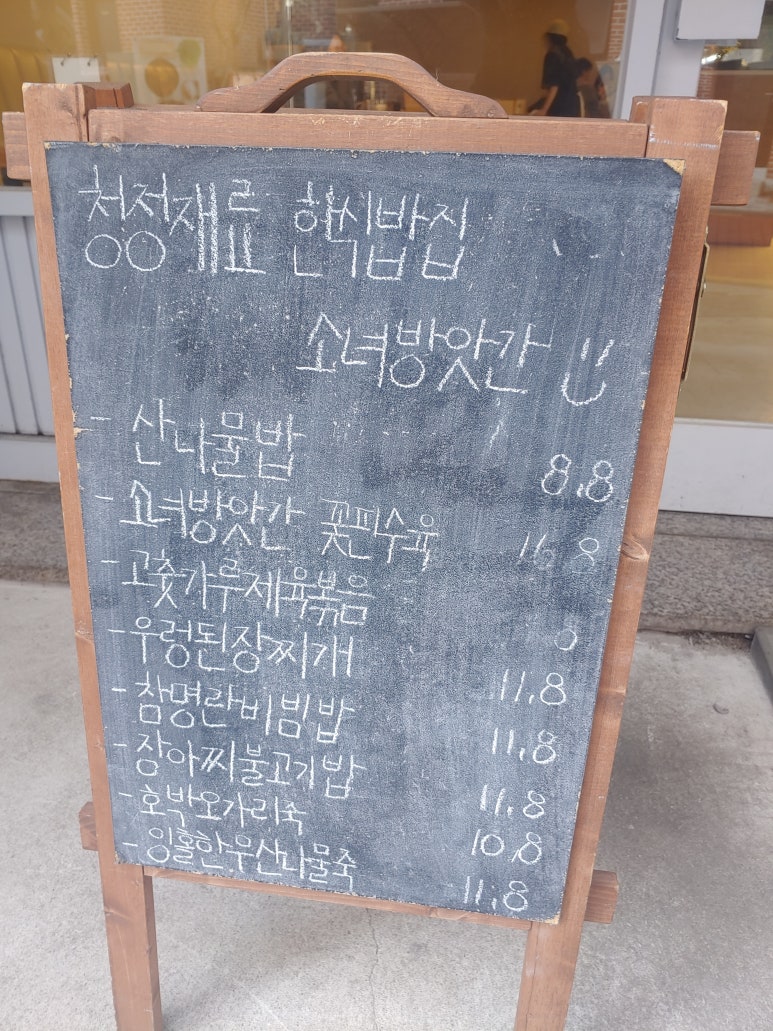 청정재료 한식밥집
소녀방앗간
- 산나물밥 8.8
- 소녀방앗간 꽃핀수육 16 8
- 고춧가루제육볶음
- 우렁된장찌개 11.8
- 참명란비빔밥 11.8
- 장아찌불고기밥 11.8
- 호박오가리죽 10.8
- 잉홀한우산나물죽 11.8